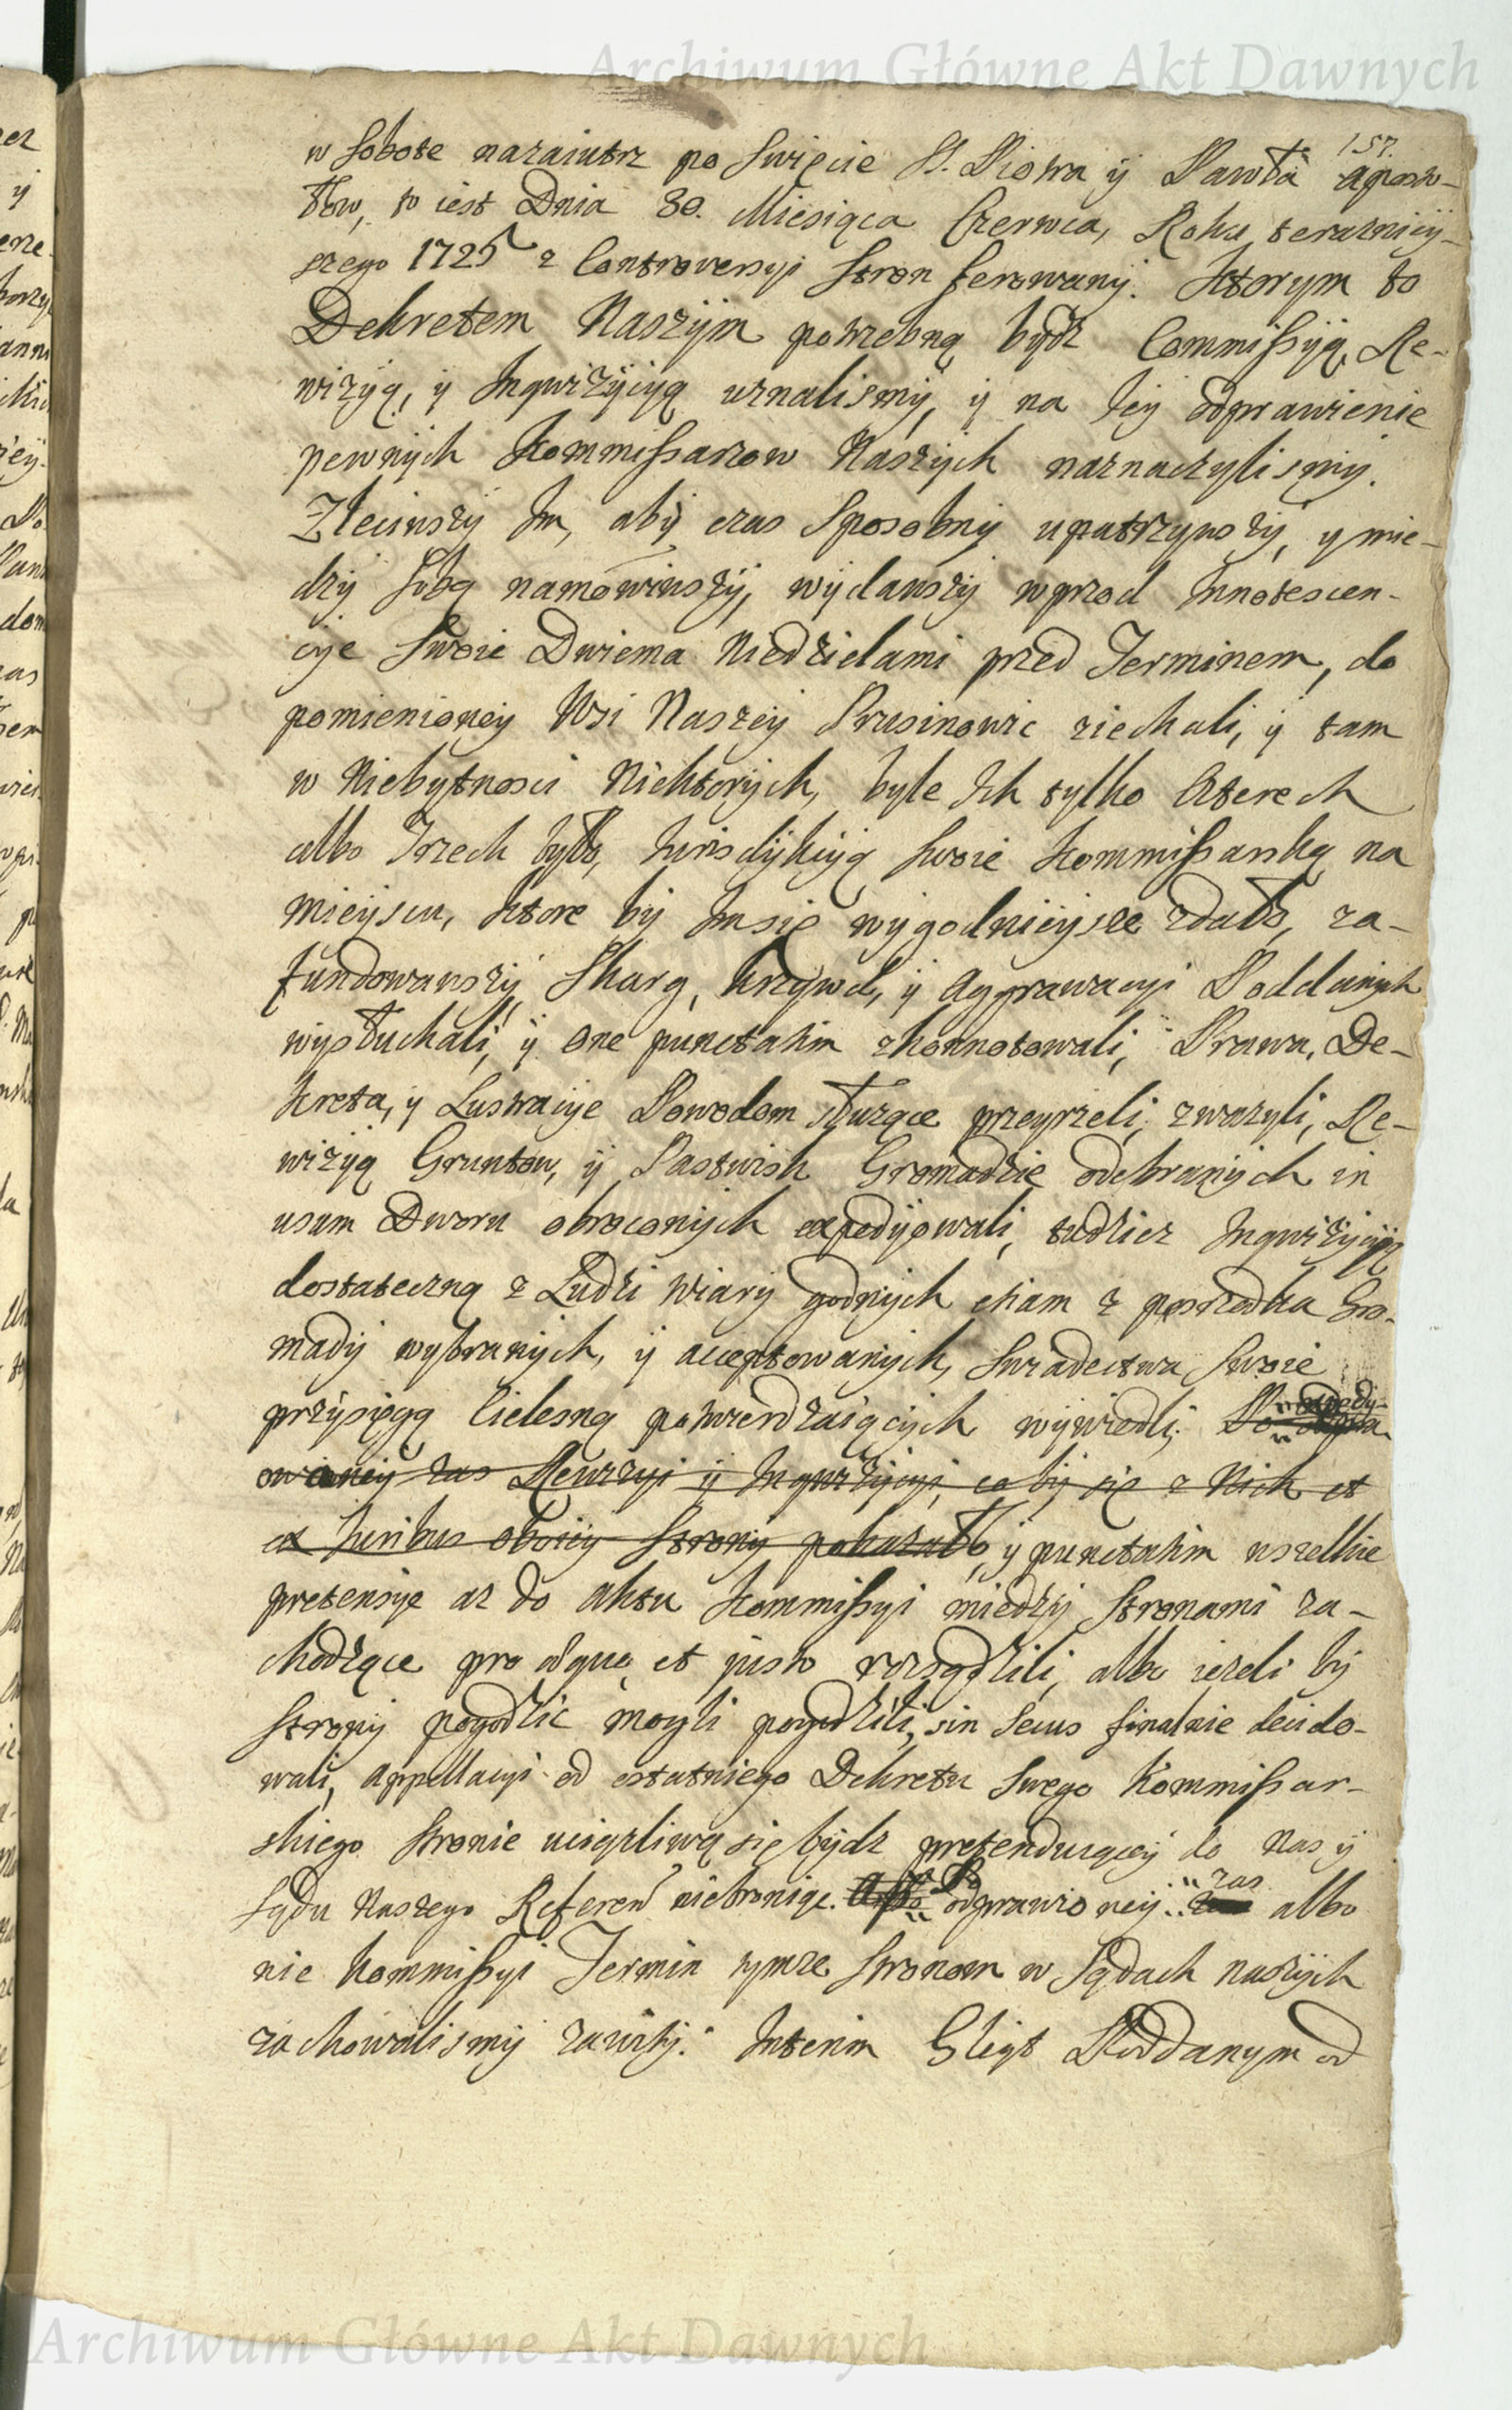 Archiwum Główne Akt Dawnych
157.
w Sobote nazaiutrz po Swięcie SS. Piotra ÿ Pawła aposto-
łow, to iest Dnia 30. Miesiąca Czerwca, Roku teraznieÿ-
szego 1725 z Controversyi Stron ferowanÿ. Ktorym to
Dekretem Naszÿm potrzebną bÿdz Commißÿą, Re-
wizÿą, ÿ Inqwizÿcyą uznalismÿ, ÿ na Jeÿ odprawienie
pewnÿch Kommißarzow Naszÿch naznaczylismÿ.
Zleciwszÿ Im, abÿ czas Sposobnÿ upatrzywszÿ, y mie-
dzÿ Sobą namowiwszÿ, wÿdawszÿ wprzod Innotescen-
cye Swoie Dwiema Niedzielami przed Terminem, do
pomienioneÿ Wsi Naszeÿ Prusinowic ziechali, ÿ tam
w Niebytnosci Niektorÿch, byle Ich tylko Czterech
albo Trzech było, Jurisdÿkcÿą Swoie Kommißarską na
mieÿscu, ktore bÿ Im się wÿgodnieÿsze zdało, za-
fundowawszÿ, Skarg, krzÿwd, ÿ Aggrawacyi Poddanÿch
wysłuchali, ÿ one punctatim zkonnotowali, Prawa, De-
kreta, ÿ Lustracÿe Powodom słuzące przeyrzeli, zwazyli, Re-
wizÿą Gruntow, ÿ Pastwisk Gromadzie odebranÿch in
usum Dworu obroconÿch expedÿowali, tudziez Inqwizÿcÿą
dostateczną z Ludzi Wiarÿ godnÿch etiam z posrzodka Gro-
madÿ wybranÿch, ÿ acceptowanÿch, Swiadectwa Swoie
przÿsięgą Cielesną potwierdzaiącÿch wÿwiedli;
zas Rewizyi ÿ Inqwizÿcyi, co bÿ się z Nich et
ex Juribus oboieÿ Stronÿ pokazało, ÿ punctatim wszelkie
pretensÿe az do aktu Kommißÿi międzÿ Stronami za-
chodzące pro æquo et justo rozsądzili, albo iezeli bÿ
Stronÿ pogodzic mogli pogodzili, sin Secus finalnie decido-
wali, Appellacyi od ostatniego Dekretu Swego Kommißar-
skiego Stronie uciązliwą się bÿdz pretenduiąceÿ do Nas ÿ
Sądu Naszego Referen niebroniąc. Po odprawioneÿ zas albo
nie Kommißÿi Termin tymze Stronom w Sądach naszÿch
zachowalismÿ zawitÿ. Interim Gleÿt Poddanym od
Archiwum Główne Akt Dawnych